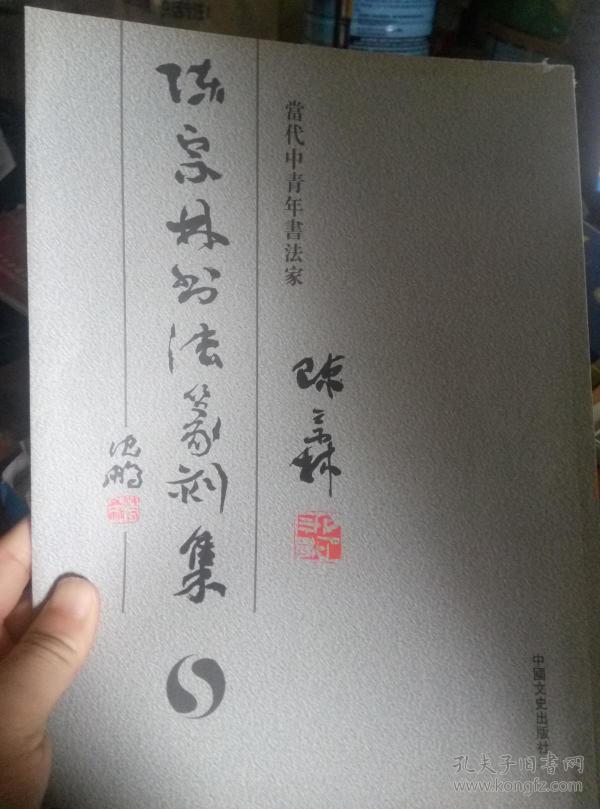 當代中青年書法家
陈宗林
陈宗林书法篆刻集
沈鹏
中國文史出版社
孔夫子旧书网
www.kongfz.com